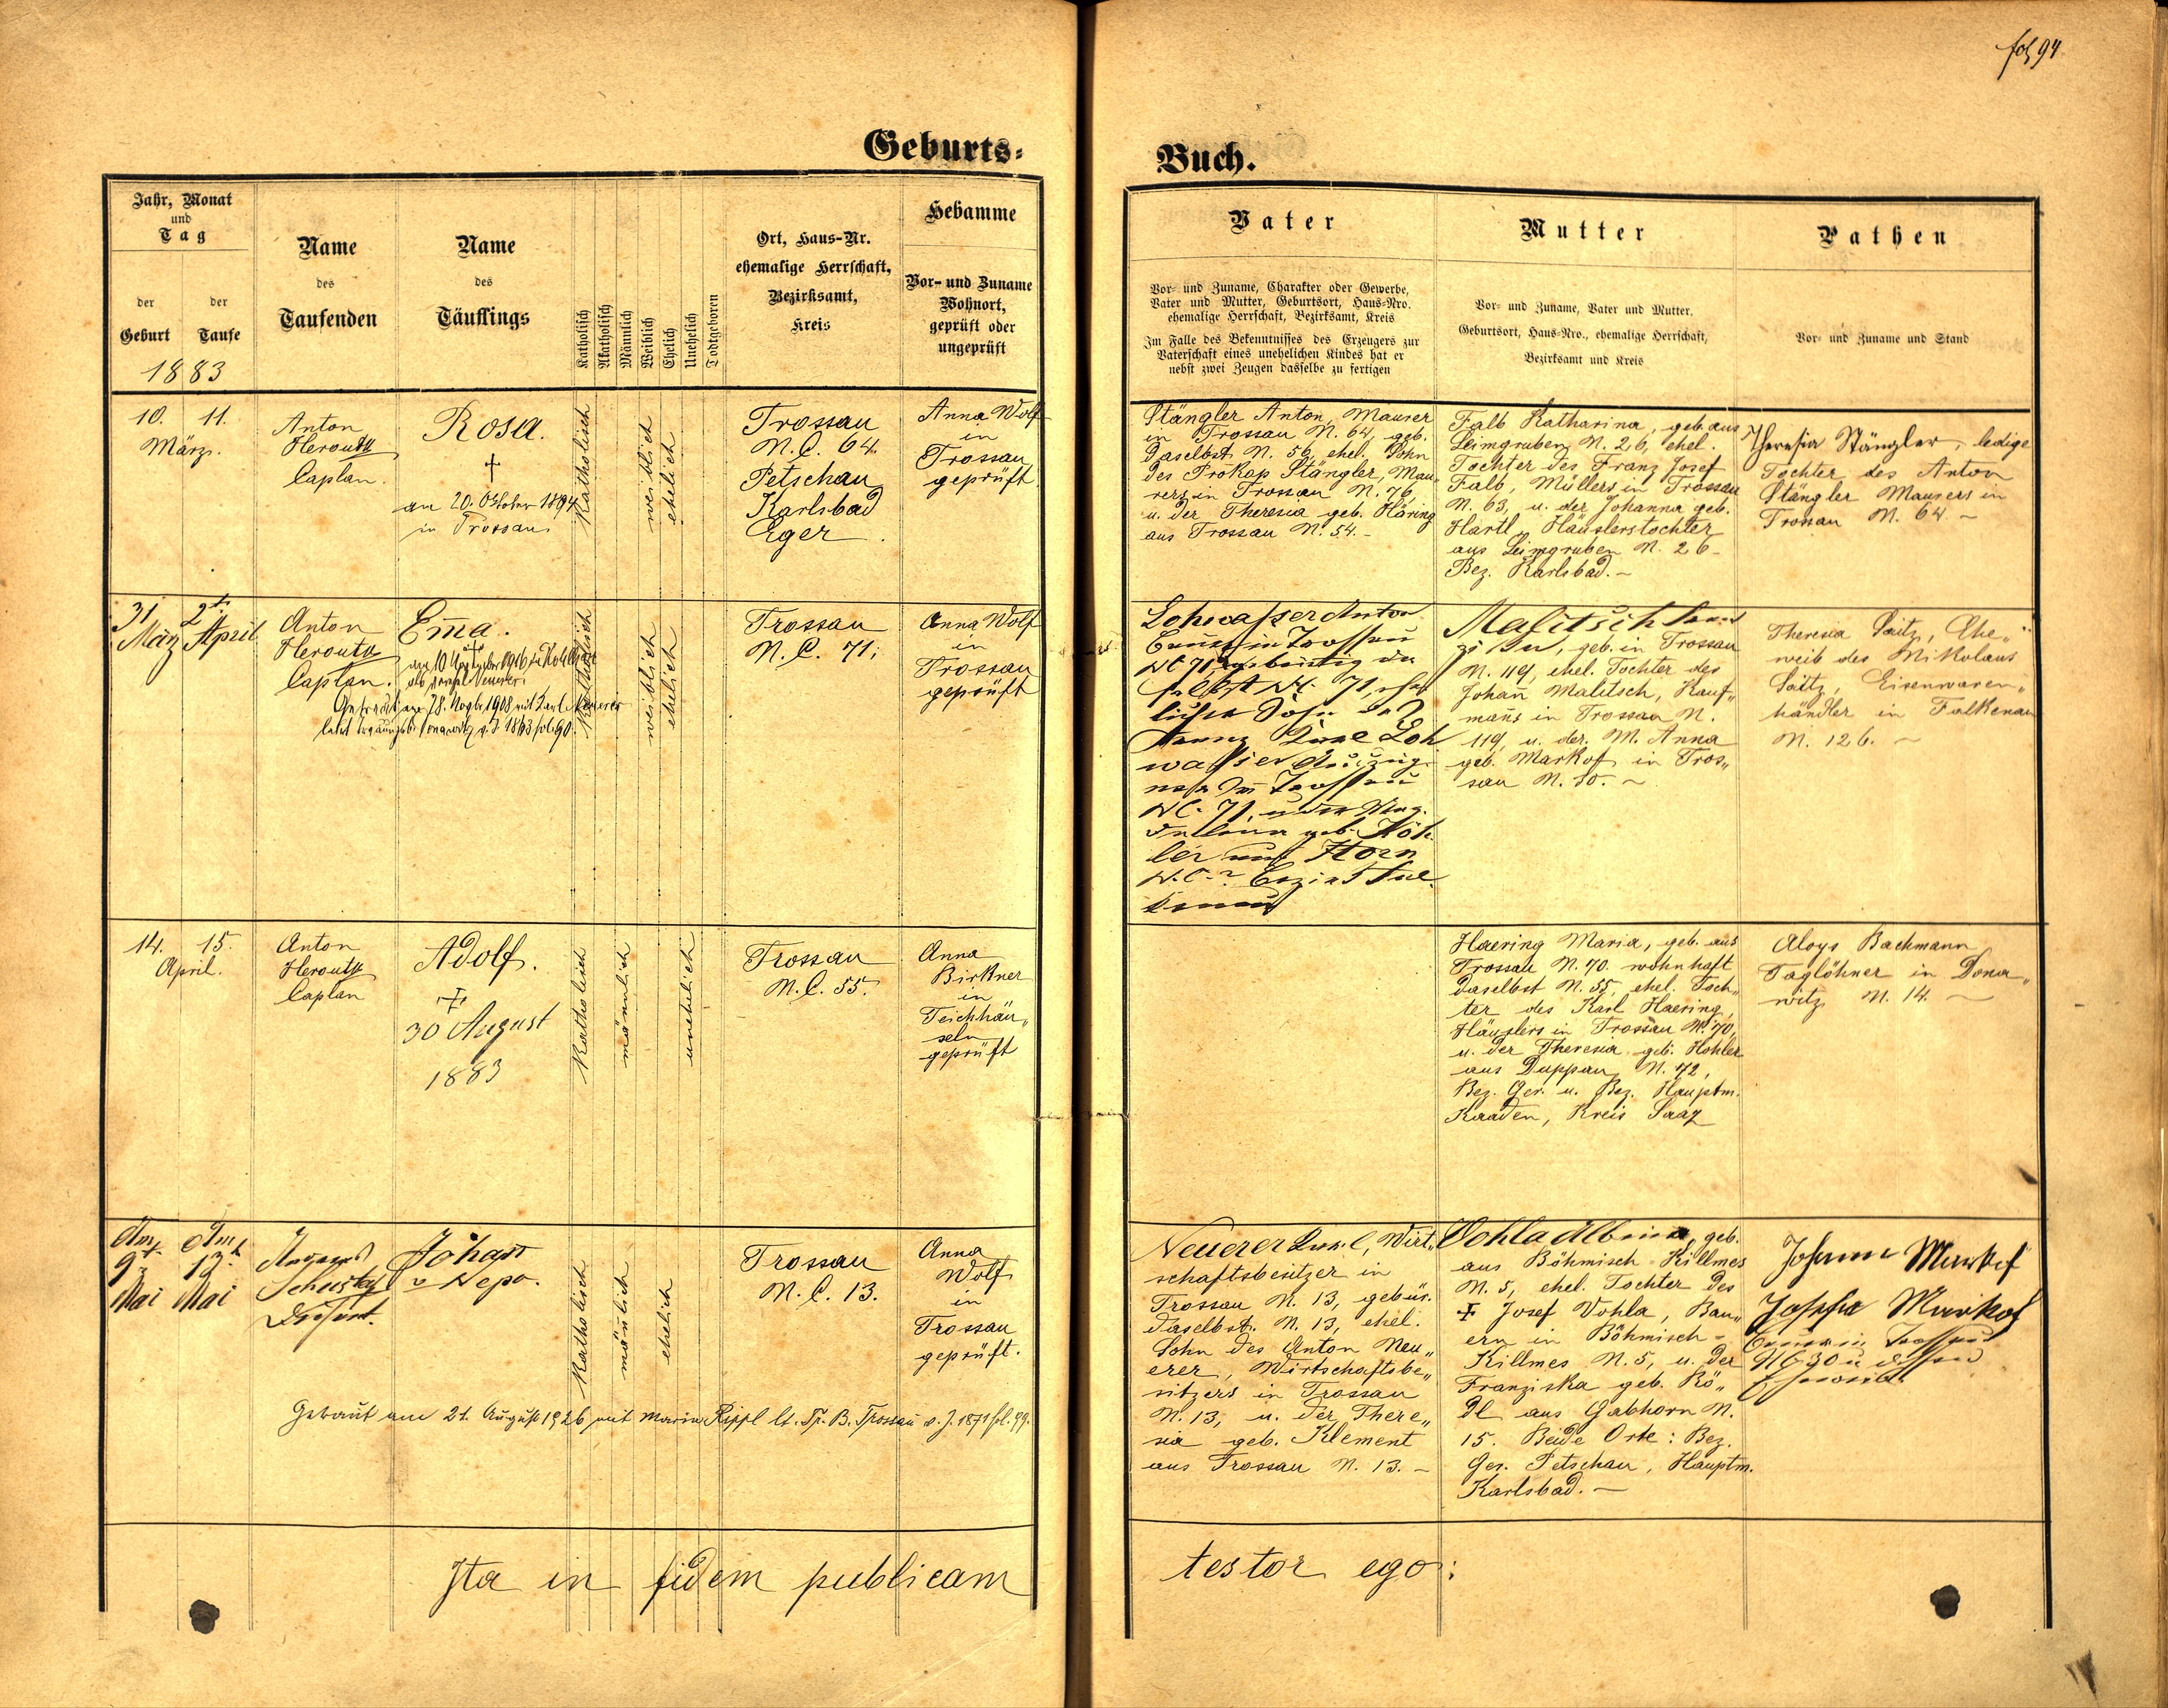 fol 94
Geburts-
Buch.
Jahr, Monat
und
Tag
der
Geburt
der
Taufe
1883
Name
des
Taufenden
Name
des
Täuflings
Katholisch
Akatholisch
Männlich
Weiblich
Ehelich
Unehelich
Todtgeboren
Ort, Haus-Nr.
ehemalige Herrschaft,
Bezirksamt,
Kreis
Hebamme
Vor- und Zuname
Wohnort,
geprüft oder
ungeprüft
Vater
Vor- und Zuname, Charakter oder Gewerbe,
Vater und Mutter, Geburtsort, Haus-Nro.
ehemalige Herrschaft, Bezirksamt, Kreis
Im Falle des Bekenntnisses des Erzeugers zur
Vaterschaft eines unehelichen Kindes hat er
nebst zwei Zeugen dasselbe zu fertigen
Mutter
Vor- und Zuname, Vater und Mutter,
Geburtsort, Haus-Nro., ehemalige Herrschaft,
Bezirksamt und Kreis
Pathen
Vor- und Zuname und Stand
10. 11.
März.
Anton
Heroutz
Caplan.
Rosa.
†
am 20. Oktober 1894
in Trossau
Katholisch
weiblich
ehelich
Trossau
N.C. 64.
Petschau
Karlsbad
Eger.
Anna Wolf
in
Trossau
geprüft
Stängler Anton, Maurer
in Trossau N. 64, geb.
daselbst N. 56, ehel. Sohn
des Prokop Stängler, Mau-
rers in Trossau N. 76,
u. der Theresia geb. Häring
aus Trossau N. 54. -
Falb Katharina, geb. aus
Leimgruben N. 26, ehel.
Tochter des Franz Josef
Falb, Müllers in Trossau
N. 63, u. der Johanna geb.
Hartl, Häuslerstochter
aus Leimgruben N. 26 -
Bez. Karlsbad. -
Theresia Stängler, ledige
Tochter des Anton
Stängler Maurers in
Trossau N. 64 -
31 2t
März April
Anton
Heroutz
Caplan.
Em̄a.
†
am 10 1916
als
Getraut am 28. Novbr. 1908 mit Karl Neuerer
laut v. J. 1883 fol 90
Katholisch
weiblich
ehelich
Trossau
N.C. 71;
Anna Wolf
in
Trossau
geprüft
Lohwasser Anton
Bauer in Trossau
NC 71 gebürtig da
selbst NC. 71, ehe
licher Sohn des
Franz Loh
wasser Auszüg
ner in Trossau
NC. 71, u der Mag-
dalena geb. Köh-
ler aus Horn
N.C. ? Bezirk Fal
kenau
Malitsch
geb. in Trossau
N. 119, ehel. Tochter des
Johan̄ Malitsch, Kauf„
man̄s in Trossau N.
119, u. der M. Anna
geb. Markof in Tros„
sau N. 30. ~
Theresia Saitz, Ehe„
weib des Nikolaus
Saitz, Eisenwaren„
händler in Falkenau
N. 126. ~
14. 15.
April.
Anton
Heroutz
Caplan
Adolf.
†
30 August
1883
Katholisch
männlich
unehelich
Trossau
N.C. 55.
Anna
Birkner
in
Teichhäu„
seln
geprüft
Haering Maria, geb. aus
Trossau N. 70. wohnhaft
daselbst N. 55, ehel. Toch„
ter des Karl Haering,
Häuslers in Trossau N. 70,
u. der Theresia geb. Hohler
aus Duppau N. 72,
Bez. Ger. u. Bez. Hauptm.
Kaaden, Kreis Saaz
Aloys Bachmann
Taglöhner in Dona„
witz N. 14. ~
Am Am
9t 13t
Mai Mai
August
Schusky
Johan̄
v Nepo.
Katholisch
män̄lich
ehelich
Trossau
N.C. 13.
Anna
Wolf
in
Trossau
geprüft.
Getraut am 21. August 1926 mit Maria Rippl lt. Tr. B. Trossau v. J. 1871 fol. 99.
Neuerer Karl, Wirt„
schaftsbesitzer in
Trossau N. 13, gebür.
daselbst. N. 13, ehel.
Sohn des Anton Neu„
erer, Wirtschaftsbe„
sitzers in Trossau
N. 13, u. der There„
sia geb. Klement
aus Trossau N. 13. -
Vohla Albina, geb.
aus Böhmisch Killmes
N. 5, ehel. Tochter des
† Josef Vohla, Bau„
ern in Böhmisch-
Killmes N. 5, u. der
Franziska geb. Rö„
dl aus Gabhorn N.
15. Beide Orte: Bez.
Ger. Petschau, Hauptm.
Karlsbad. -
Johann Markof
Josefa Markof
Bauer in Trossau
NC 30 u dessen
Eheweib.
Ita in fidem publicam
testor ego: